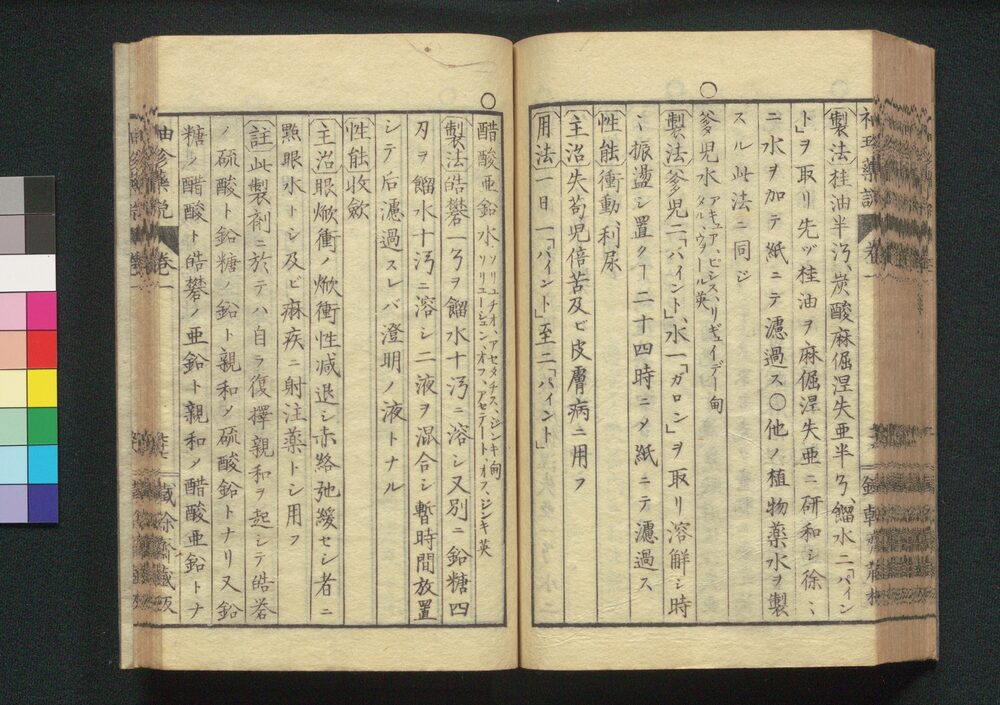 製法桂油半沔、炭酸麻倔涅失亜半匁、餾水二「パイン
ト」ヲ取リ先ヅ桂油ヲ麻倔涅失亜ニ研和シ徐〻
ニ水ヲ加テ紙ニテ濾過ス〇他ノ植物薬水ヲ製
スル此法ニ同ジ
爹児水 アキュア、ピシス、リギュイデー甸
タル、ウヲートル英
製法爹児二「パイント」、水一「ガロン」ヲ取リ溶解シ時
〻振盪シ置クヿ二十四時ニメ紙ニテ濾過ス
性能衝動利尿
主治失苟児倍苦及ビ皮膚病ニ用フ
用法一日一「パイント」至二「パイント」
醋酸亜鉛水 ソリュチオ、アセタチス、ジンキ甸
ソリューシュン、オフ、アセテート、オフ、ジンキ英
製法皓礬一匁ヲ餾水十沔ニ溶シ又別ニ鉛糖四
刄ヲ餾水十沔ニ溶シ二液ヲ混合シ暫時間放置
シテ后濾過スレバ澄明ノ液トナル
性能收斂
主治眼焮衝ノ焮衝性減退シ赤絡弛緩セシ者ニ
點眼水トシ及ビ麻疾ニ射注薬トシ用フ
註此製剤ニ於テハ自ヲ復擇親和ヲ起シテ皓礬
ノ硫酸ト鉛糖ノ鉛ト親和メ硫酸鉛トナリ又鉛
糖ノ醋酸ト皓礬ノ亜鉛ト親和メ醋酸亜鉛トナ
袖珍薬説 巻一